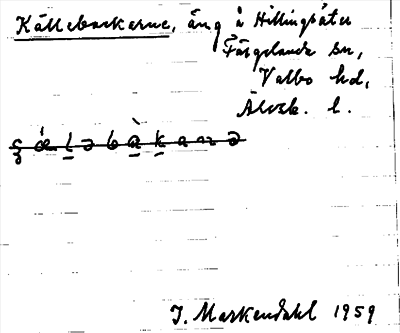 Källebackarne, äng å Hillingsäter
Färgelanda sn,
Valbo hd,
Älvsb. l.
J. Markendahl 1959